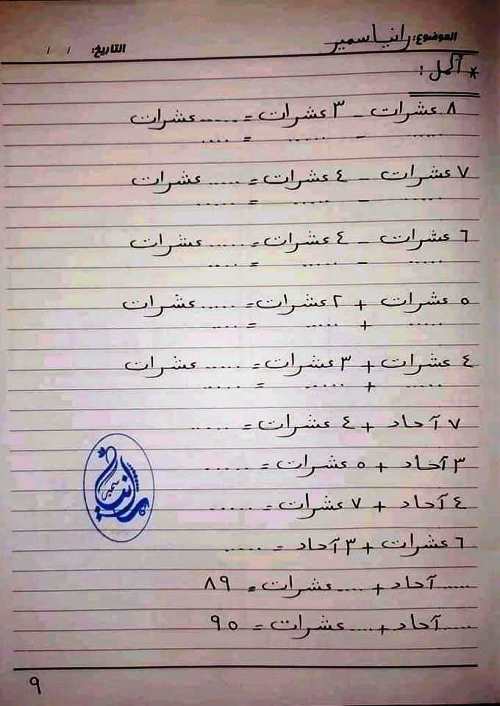 الموضوع: رانيا سمير
التاريخ: / /
* أكمل :
٨ عشرات - ٣ عشرات = ..... عشرات
...... - ...... = ....
٧ عشرات - ٤ عشرات = ..... عشرات
...... - ...... = .....
٦ عشرات - ٤ عشرات = ..... عشرات
...... - ...... = ....
٥ عشرات + ٢ عشرات = ..... عشرات
...... + ...... = ....
٤ عشرات + ٣ عشرات = ..... عشرات
...... + ...... = .....
٧ آحاد + ٤ عشرات = .....
٣ آحاد + ٥ عشرات = .....
٤ آحاد + ٧ عشرات = .....
٦ عشرات + ٣ آحاد = .....
..... آحاد + .... عشرات = ٨٩
..... آحاد + .... عشرات = ٩٥
رانيا سمير
٩